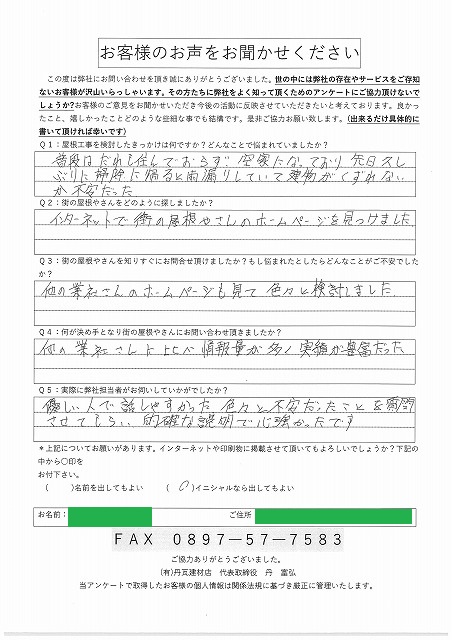 お客様のお声をお聞かせください
この度は弊社にお問い合わせを頂き誠にありがとうございました。世の中には弊社の存在やサービスをご存知
ないお客様が沢山いらっしゃいます。その方たちに弊社をよく知って頂くためのアンケートにご協力頂けないで
しょうか?お客様のご意見をお聞かせいただき今後の活動に反映させていただきたいと考えております。良かっ
たこと、嬉しかったことどのような些細な事でも結構です。是非ご協力お願い致します。(出来るだけ具体的に
書いて頂ければ幸いです)
Q1：屋根工事を検討したきっかけは何ですか?どんなことで悩まれていましたか?
普段はだれも住んでおらず 空家になっており 先日久し
ぶりに掃除に帰ると雨漏りしていて建物がくずれない
か不安だった
Q2：街の屋根やさんをどのように探しましたか?
インターネットで街の屋根やさんのホームページを見つけました
Q3：街の屋根やさんを知りすぐにお問合せ頂けましたか?もし悩まれたとしたらどんなことがご不安でした
か?
他の業社さんのホームページも見て 色々と検討しました。
Q4：何が決め手となり街の屋根やさんにお問い合わせ頂きましたか?
他の業社さんに比べ情報量が多く実績が豊富だった
Q5：実際に弊社担当者がお伺いしていかがでしたか?
優しい人で話しやすかった 色々と不安だったことを質問
させてもらい 的確な説明で心強かったです
＊上記についてお願いがあります。インターネットや印刷物に掲載させて頂いてもよろしいでしょうか?下記の
中から〇印を
お付下さい。
(　　)名前を出してもよい　　(　〇)イニシャルなら出してもよい
お名前：　　ご住所：
FAX 0897－57－7583
ご協力ありがとうございました。
(有)丹瓦建材店　代表取締役　丹　富弘
当アンケートで取得したお客様の個人情報は関係法規に基づき厳正に管理いたします。